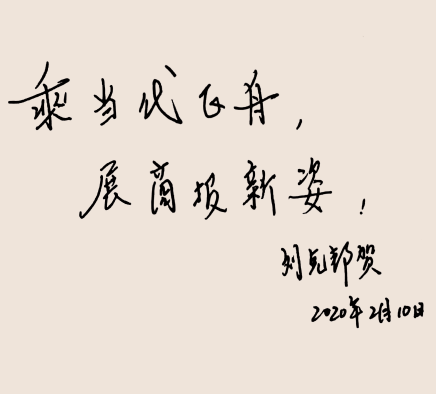 乘当代飞舟，
展商报新姿！
刘克邦贺
2020年2月10日